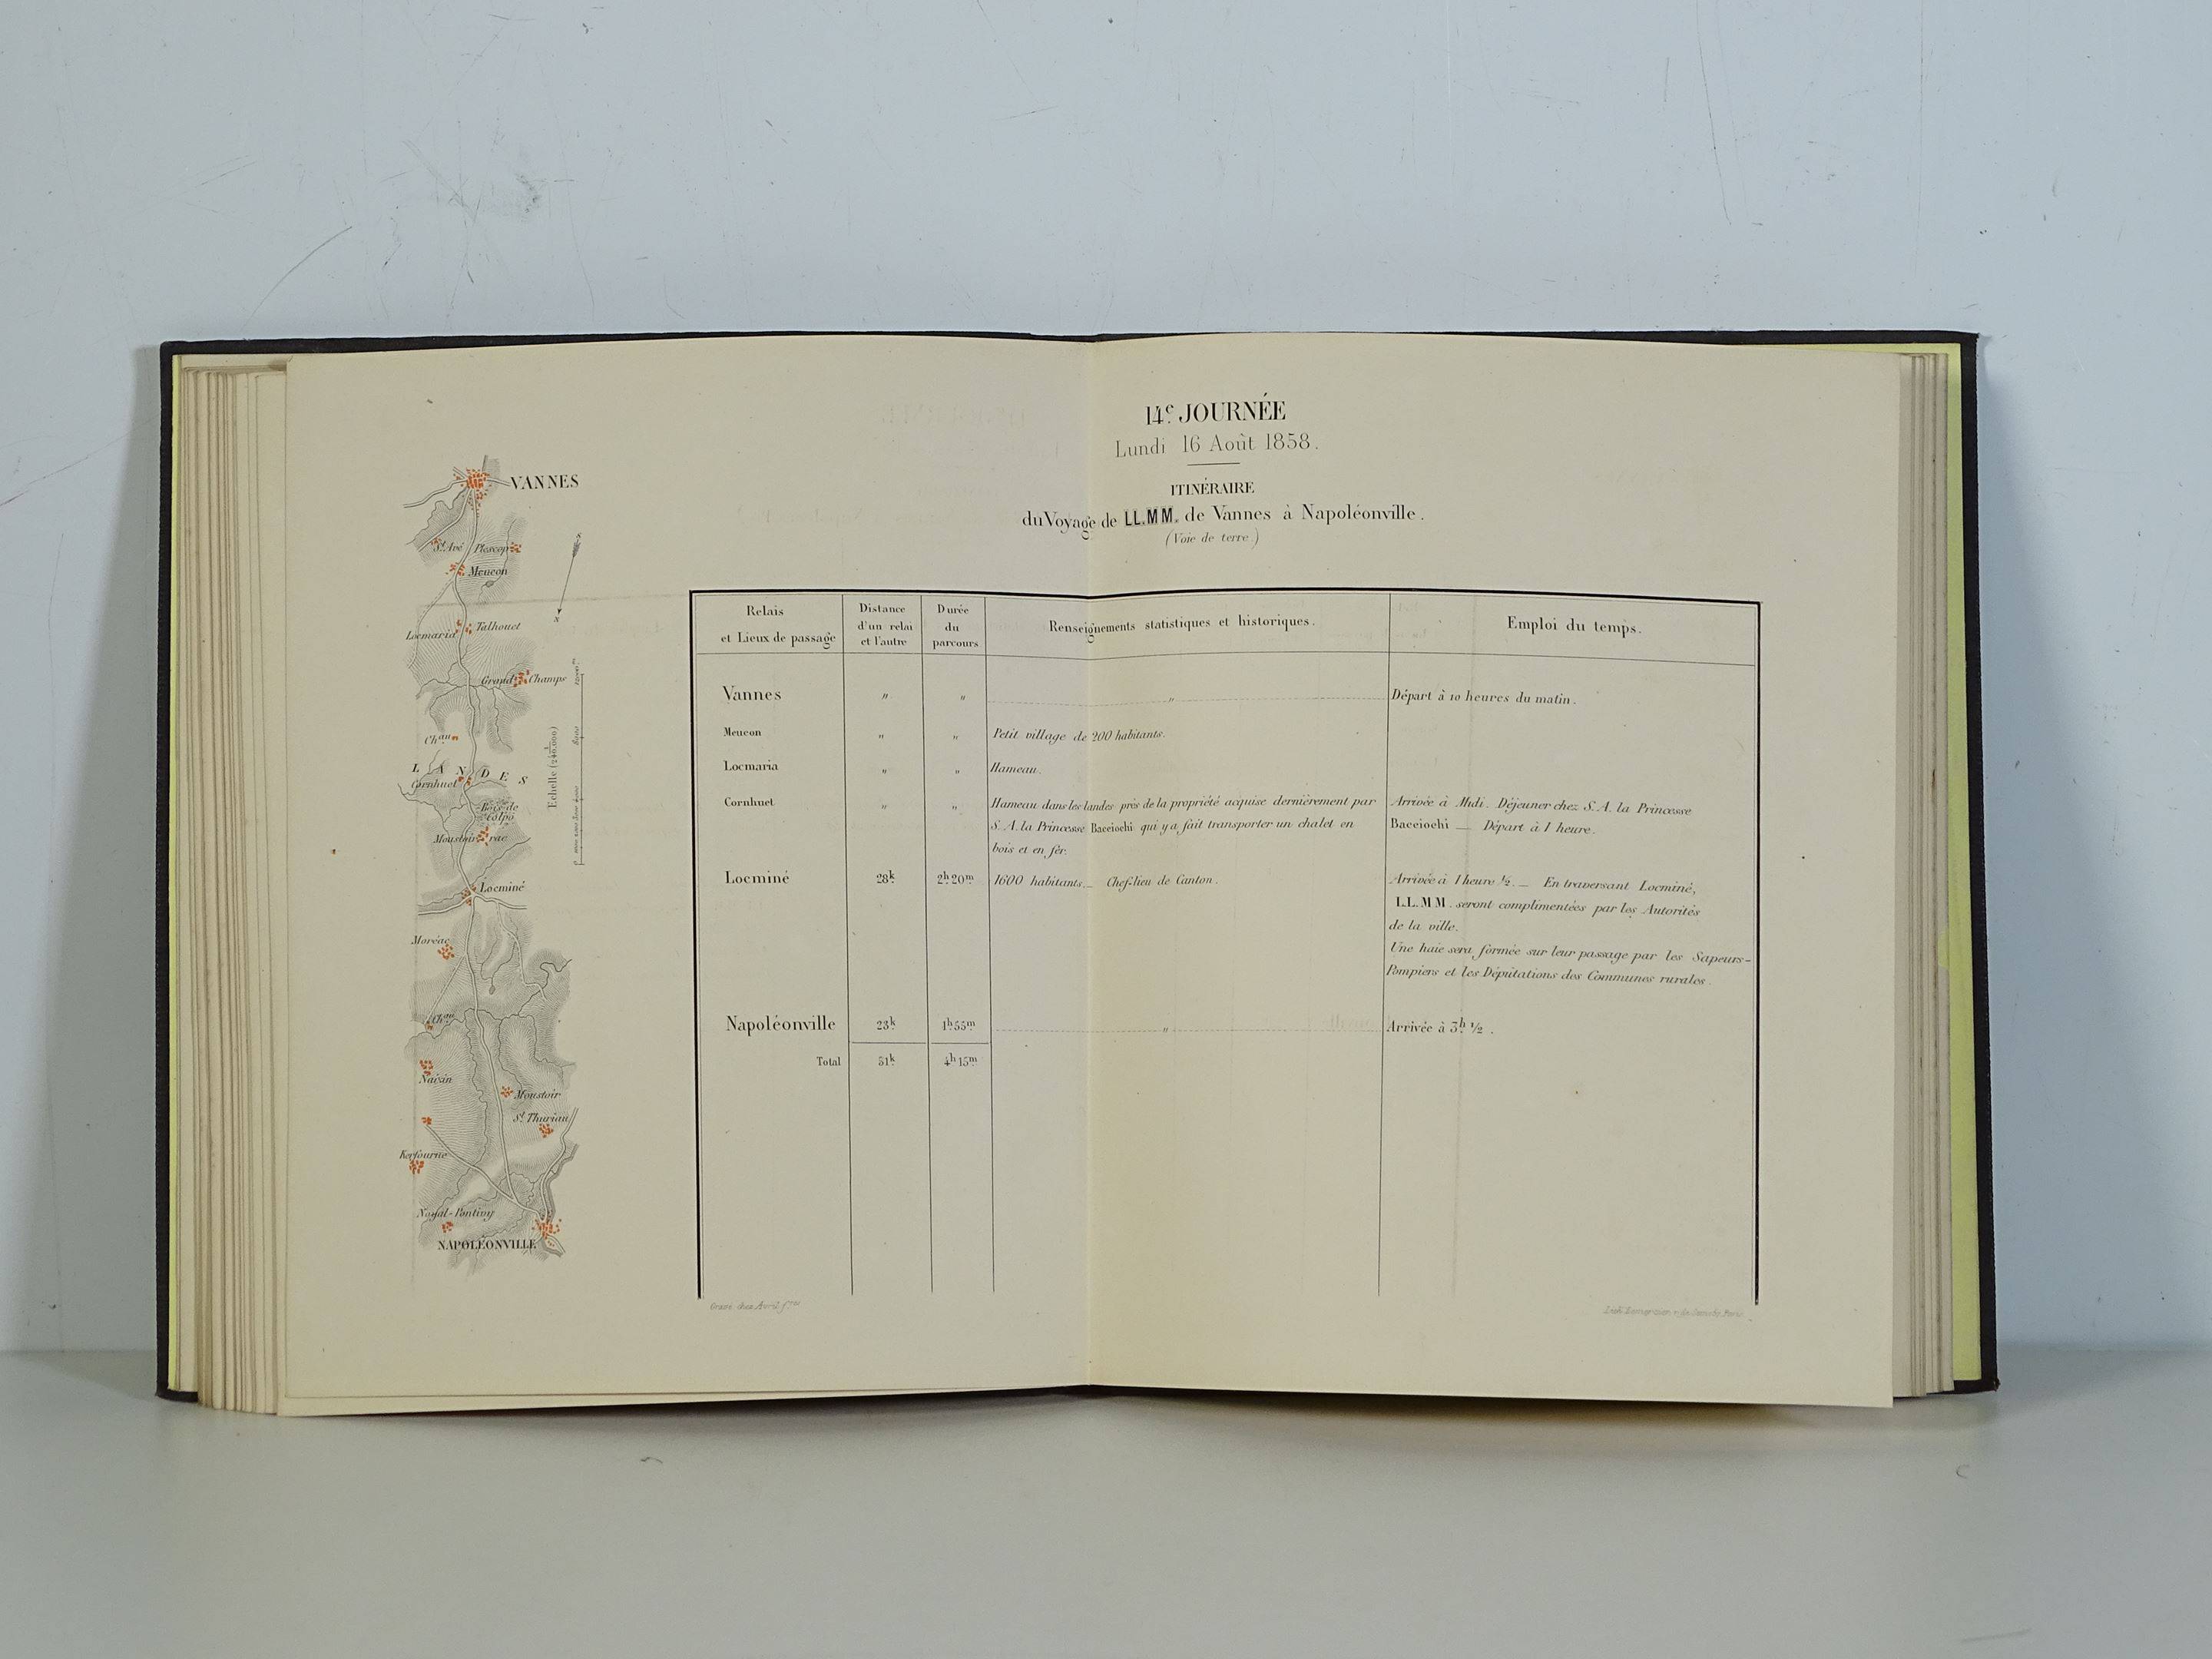 14e JOURNÉE
Lundi 16 Août 1858.
ITINÉRAIRE
du Voyage de LL.MM. de Vannes à Napoléonville.
(Voie de terre.)
VANNES
St Avé Plescop
Meucon
Locmaria Talhouet
Grand Champs
Chau
LANDES
Cornhuet
Bois de
Colpo
Moustoirac
Locminé
Moréac
Chau
Naizin
Moustoir
St Thurian
Kerfourne
Noyal-Pontivy
NAPOLÉONVILLE
Echelle
Relais
et Lieux de passage
Distance
d'un relai
et l'autre
Durée
du
parcours
Renseignements statistiques et historiques.
Emploi du temps.
Vannes " " " Départ à 10 heures du matin.
Meucon " " Petit village de 200 habitants.
Locmaria " " Hameau.
Cornhuet " " Hameau dans les landes près de la propriété acquise dernièrement par
S. A. la Princesse Bacciochi qui y a fait transporter un chalet en
bois et en fer.
Arrivée à Midi. Déjeuner chez S. A. la Princesse
Bacciochi — Départ à 1 heure.
Locminé 28k 2h 20m 1600 habitants. — Chef-lieu de Canton.
Arrivée à 1 heure ½. — En traversant Locminé,
LL.MM. seront complimentées par les Autorités
de la ville.
Une haie sera formée sur leur passage par les Sapeurs-
Pompiers et les Députations des Communes rurales.
Napoléonville 23k 1h 55m " Arrivée à 3h ½.
Total 51k 4h 15m
Gravé chez Avril fres